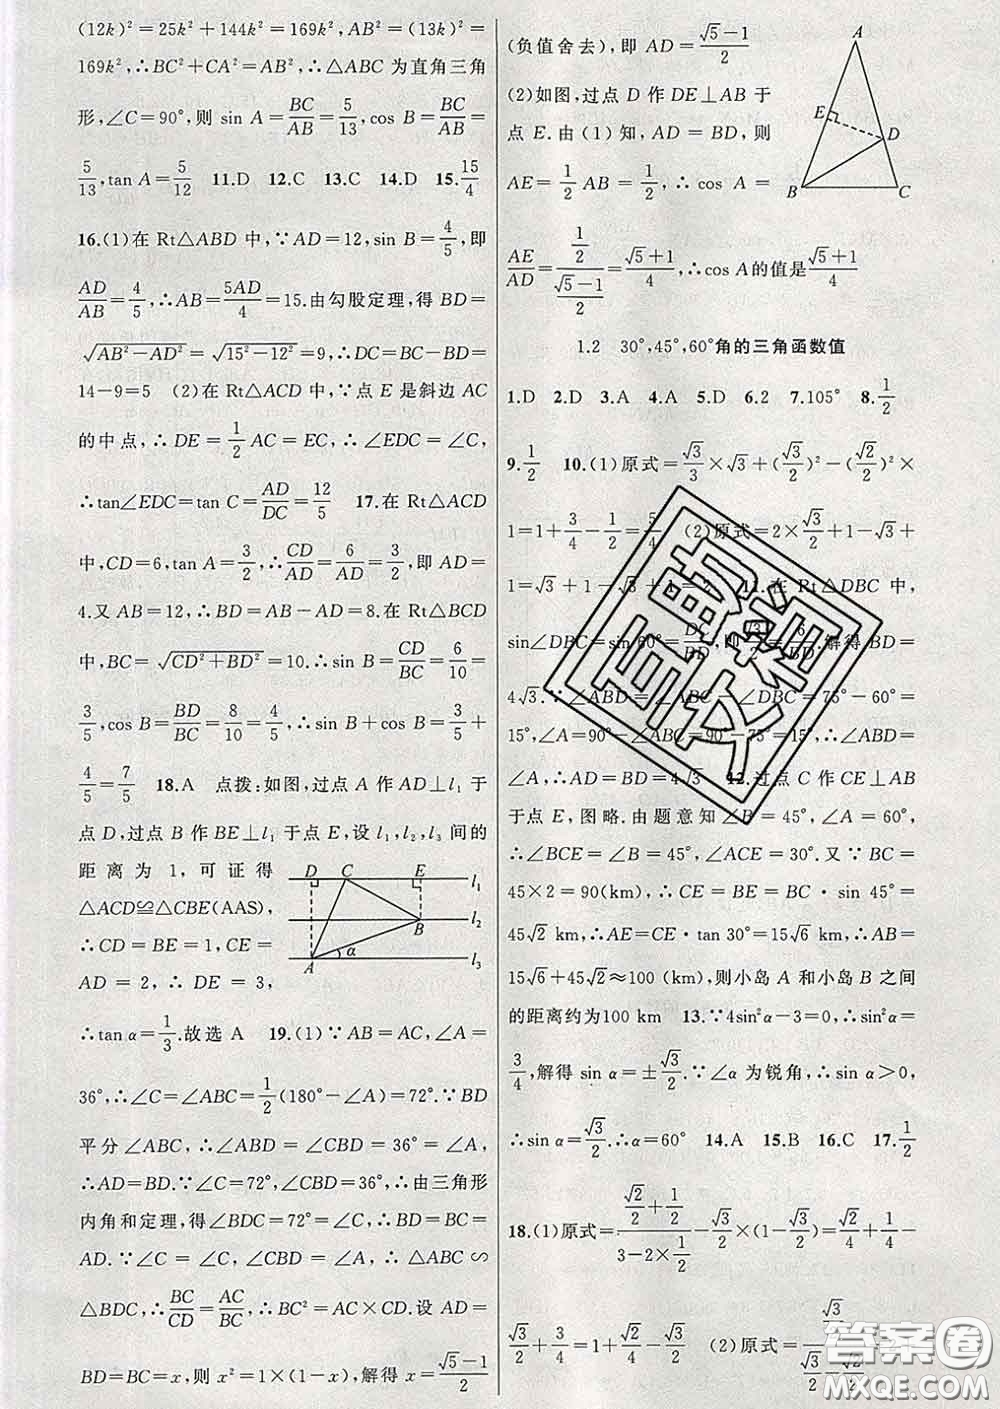 (12k)²=25k²+144k²=169k²,AB²=(13k)²=
169k²,∴BC²+CA²=AB²,∴△ABC 为直角三角
形,∠C=90°,则 sin A=BC/AB=5/13,cos B=BC/AB=
5/13,tan A=5/12 11.D 12.C 13.C 14.D 15.15/4
16.(1)在 Rt△ABD 中,∵AD=12,sin B=4/5,即
AD/AB=4/5,∴AB=5AD/4=15.由勾股定理,得 BD=
√(AB²-AD²)=√(15²-12²)=9,∴DC=BC-BD=
14-9=5 (2)在 Rt△ACD 中,∵点 E 是斜边 AC
的中点,∴DE=1/2 AC=EC,∴∠EDC=∠C,
∴tan∠EDC=tan C=AD/DC=12/5 17.在 Rt△ACD
中,CD=6,tan A=3/2,∴CD/AD=6/AD=3/2,即 AD=
4.又 AB=12,∴BD=AB-AD=8.在 Rt△BCD
中,BC=√(CD²+BD²)=10.∴sin B=CD/BC=6/10=
3/5,cos B=BD/BC=8/10=4/5,∴sin B+cos B=3/5+
4/5=7/5 18.A 点拨:如图,过点 A 作 AD⊥l₁ 于
点 D,过点 B 作 BE⊥l₁ 于点 E,设 l₁,l₂,l₃ 间的
距离为 1,可证得
△ACD≌△CBE(AAS),
∴CD=BE=1,CE=
AD=2,∴DE=3,
∴tan α=1/3.故选 A 19.(1)∵AB=AC,∠A=
D C E l₁
B l₂
A α l₃
36°,∴∠C=∠ABC=1/2(180°-∠A)=72°.∵BD
平分∠ABC,∴∠ABD=∠CBD=36°=∠A,
∴AD=BD.∵∠C=72°,∠CBD=36°,∴由三角形
内角和定理,得∠BDC=72°=∠C,∴BD=BC=
AD.∵∠C=∠C,∠CBD=∠A,∴△ABC∽
△BDC,∴BC/CD=AC/BC,∴BC²=AC×CD.设 AD=
BD=BC=x,则 x²=1×(1-x),解得 x=(√5-1)/2
(负值舍去),即 AD=(√5-1)/2
(2)如图,过点 D 作 DE⊥AB 于
点 E.由(1)知,AD=BD,则
AE=1/2 AB=1/2,∴cos A=
A
E D
B C
AE/AD=(1/2)/((√5-1)/2)=(√5+1)/4,∴cos A的值是(√5+1)/4
1.2 30°,45°,60°角的三角函数值
1.D 2.D 3.A 4.A 5.D 6.2 7.105° 8.1/2
9.1/2 10.(1)原式=√3/3×√3+(√3/2)²-(√2/2)²×
1=1+3/4-1/2=5/4 (2)原式=2×√3/2+1-√3+
1=√3+1-√3+1=2 11.在 Rt△DBC 中,
sin∠DBC=sin 60°=DC/BD,即√3/2=6/BD.解得 BD=
4√3.∵∠ABD=∠ABC-∠DBC=75°-60°=
15°,∠A=90°-∠ABC=90°-75°=15°,∴∠ABD=
∠A,∴AD=BD=4√3 12.过点 C 作 CE⊥AB
于点 E,图略.由题意知∠B=45°,∠A=60°,
∴∠BCE=∠B=45°,∠ACE=30°.又∵BC=
45×2=90(km),∴CE=BE=BC·sin 45°=
45√2 km,∴AE=CE·tan 30°=15√6 km,∴AB=
15√6+45√2≈100 (km),则小岛 A 和小岛 B 之间
的距离约为100 km 13.∵4sin²α-3=0,∴sin²α=
3/4,解得 sin α=±√3/2.∵∠α 为锐角,∴sin α>0,
∴sin α=√3/2.∴α=60° 14.A 15.B 16.C 17.1/2
18.(1)原式=(√2/2+1/2)/(3-2×1/2)-√3/2×(1-√3/2)=√2/4+1/4-
√3/2+3/4=1+√2/4-√3/2 (2)原式=(√3/2)/(√3/2-√2/2)
百助文档
答案圈
MXQE.COM